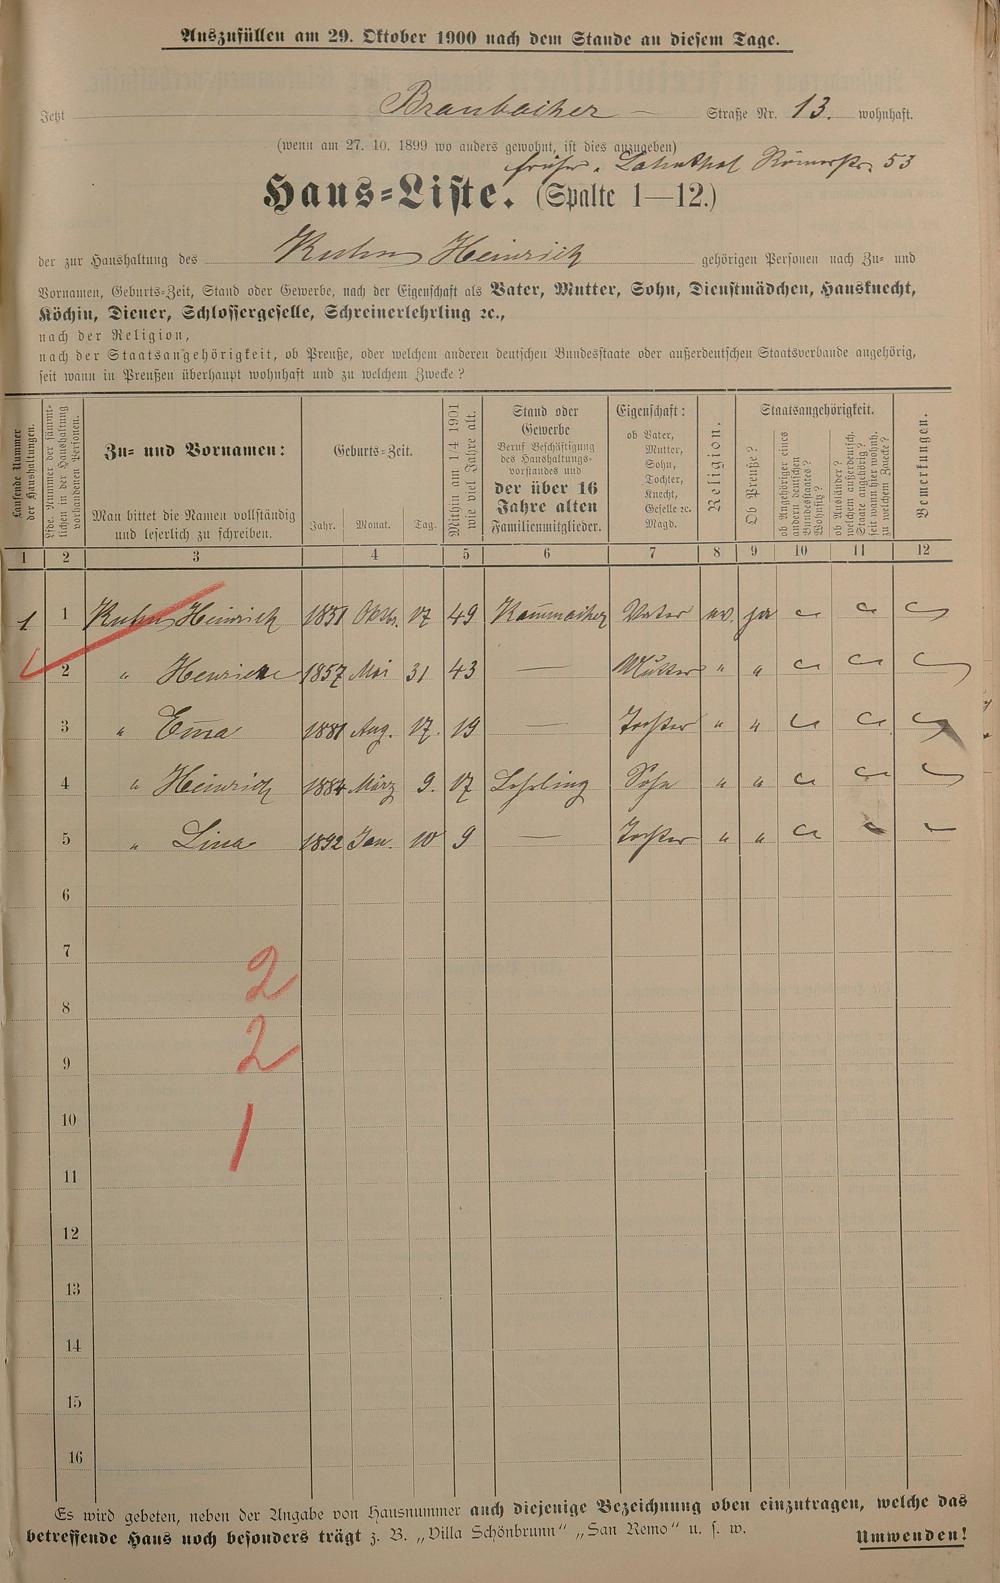 Auszufüllen am 29. Oktober 1900 nach dem Stande an diesem Tage.
Jetzt Braubacher – Straße Nr. 13. wohnhaft.
(wenn am 27. 10. 1899 wo anders gewohnt, ist dies anzugeben)
früher. Lahnthal Römerstr. 53
Haus-Liste. (Spalte 1—12.)
der zur Haushaltung des Kuhn Heinrich gehörigen Personen nach Zu- und
Vornamen, Geburts-Zeit, Stand oder Gewerbe, nach der Eigenschaft als Vater, Mutter, Sohn, Dienstmädchen, Hausknecht,
Köchin, Diener, Schlossergeselle, Schreinerlehrling ꝛc.,
nach der Religion,
nach der Staatsangehörigkeit, ob Preuße, oder welchem anderen deutschen Bundesstaate oder außerdeutschen Staatsverbande angehörig,
seit wann in Preußen überhaupt wohnhaft und zu welchem Zwecke?
Laufende Nummer
der Haushaltungen.
Lfde. Nummer der sämmt-
lichen in der Haushaltung
vorhandenen Personen.
Zu- und Vornamen:
Man bittet die Namen vollständig
und leserlich zu schreiben.
Geburts-Zeit.
Jahr. Monat. Tag.
Mithin am 1/4 1901
wie viel Jahre alt.
Stand oder
Gewerbe
Beruf Beschäftigung
des Haushaltungs-
vorstandes und
der über 16
Jahre alten
Familienmitglieder.
Eigenschaft:
ob Vater,
Mutter,
Sohn,
Tochter,
Knecht,
Geselle ꝛc.
Magd.
Religion.
Staatsangehörigkeit.
Ob Preuße?
ob Angehöriger eines
andern deutschen
Bundesstaates?
Wohnsitz?
ob Ausländer?
welchem außerdeutsch.
Staate angehörig?
seit wann hier wohnh.
zu welchem Zwecke?
Bemerkungen.
1 2 3 4 5 6 7 8 9 10 11 12
1 1 Kuhn Heinrich 1851 Oktb. 17 49 Kam̅macher Vater ev. ja
2 " Henriette 1857 Mai 31 43 — Mutter " "
3 " Em̅a 1881 Aug. 17. 19 — Tochter " "
4 " Heinrich 1884 März 9. 17 Lehrling Sohn " "
5 " Lina 1892 Jan. 10 9 — Tochter " "
6
7
2
8
2
9
10
1
11
12
13
14
15
16
Es wird gebeten, neben der Angabe von Hausnummer auch diejenige Bezeichnung oben einzutragen, welche das
betreffende Haus noch besonders trägt z. B. „Villa Schönbrunn" „San Remo" u. s. w. Umwenden!